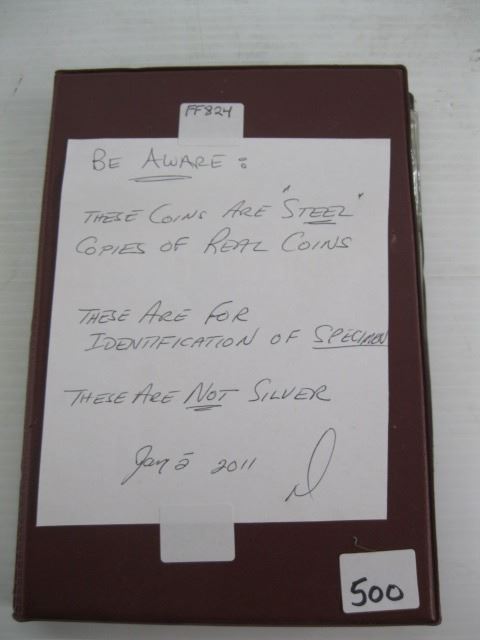 FF824
BE AWARE:
THESE COINS ARE "STEEL"
COPIES OF REAL COINS
THESE ARE FOR
IDENTIFICATION OF SPECIMEN
THESE ARE NOT SILVER
Jan 2 2011
500